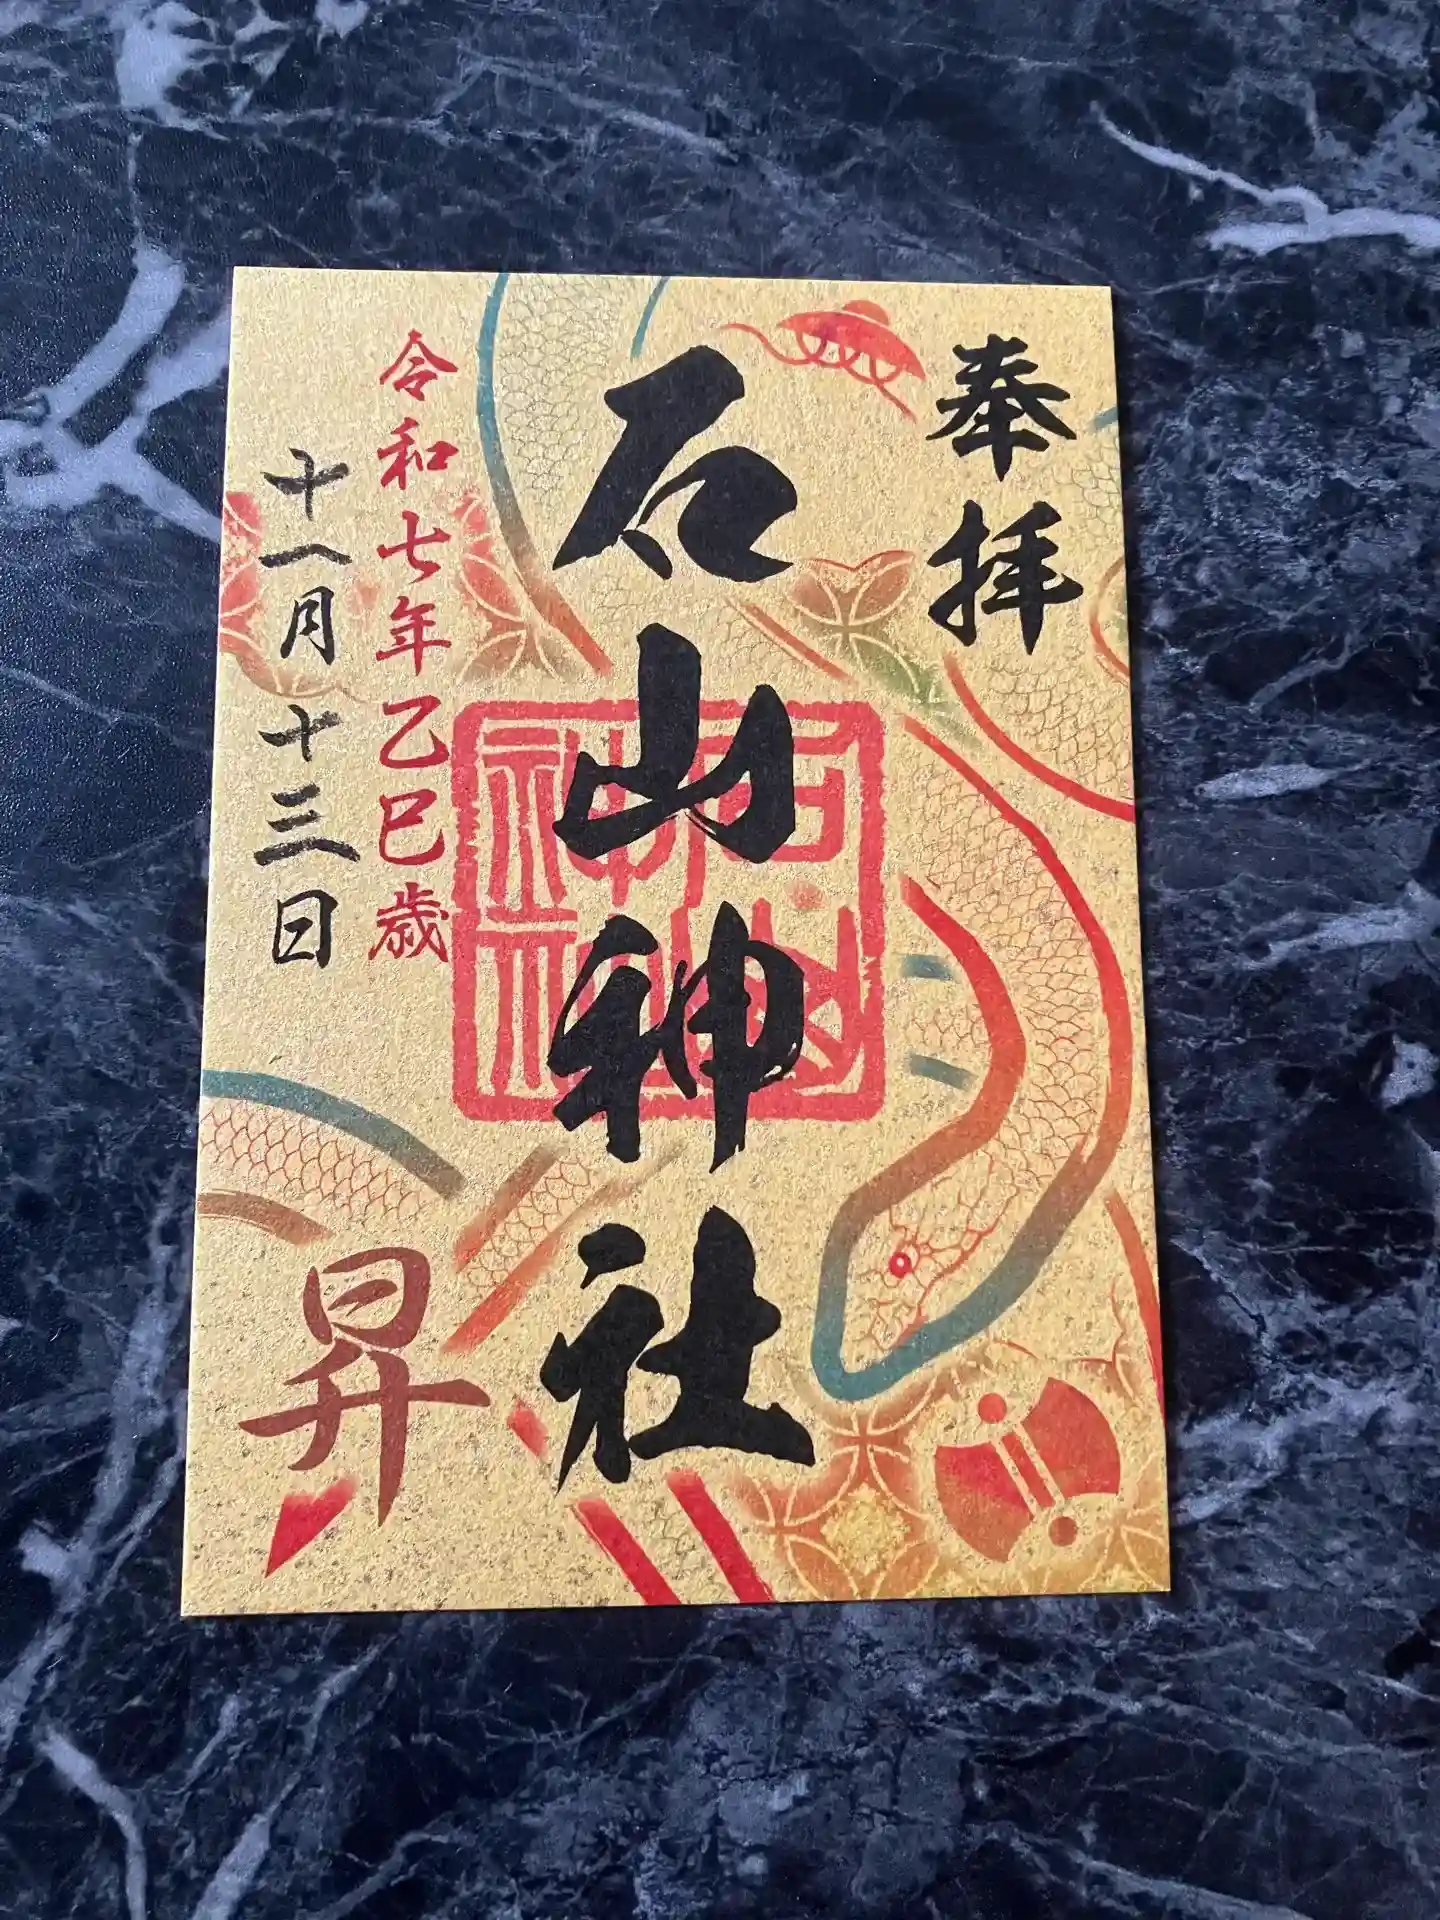 奉拝
石山神社
石山
神社
令和七年乙巳歳
十一月十三日
昇